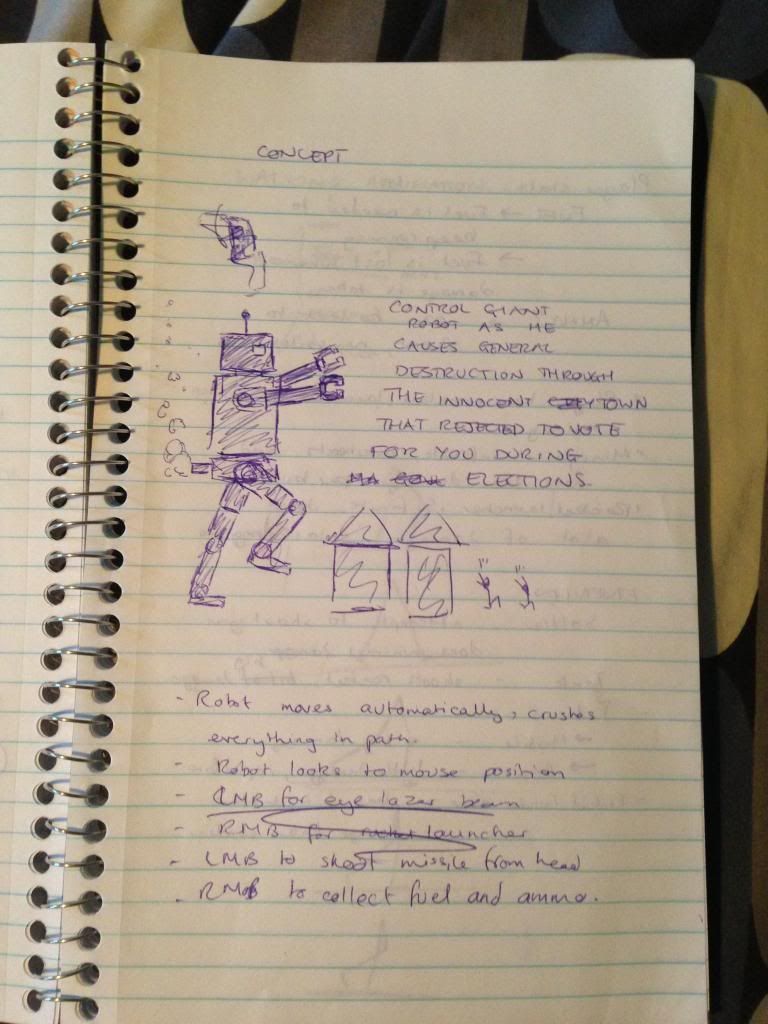 CONCEPT
CONTROL GIANT
ROBOT AS HE
CAUSES GENERAL
DESTRUCTION THROUGH
THE INNOCENT CITY TOWN
THAT REJECTED TO VOTE
FOR YOU DURING
ELECTIONS.
- Robot moves automatically, crushes
everything in path.
- Robot looks to mouse position
- LMB for eye lazer beam
- RMB for rocket launcher
- LMB to shoot missile from head
- RMB to collect fuel and ammo.